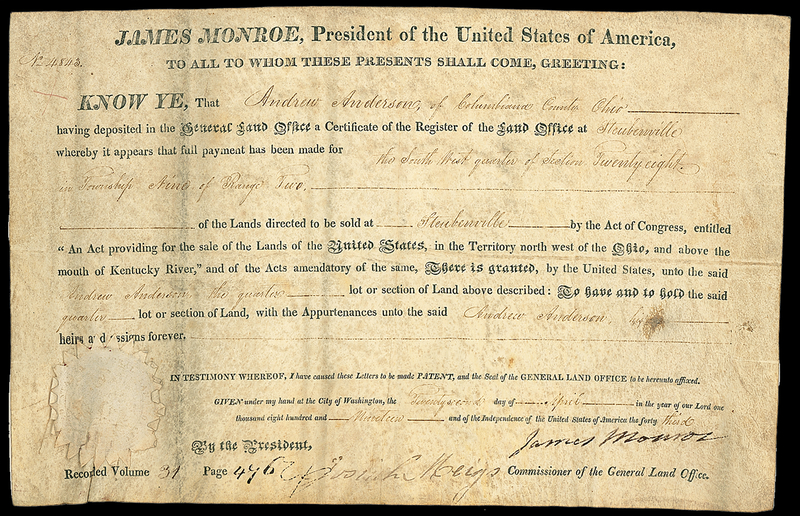 JAMES MONROE, President of the United States of America,
No 4843.
TO ALL TO WHOM THESE PRESENTS SHALL COME, GREETING:
KNOW YE, That Andrew Anderson, of Columbiana County Ohio
having deposited in the General Land Office a Certificate of the Register of the Land Office at Steubenville
whereby it appears that full payment has been made for the South West quarter of Section Twenty eight
in Township Nine of Range Two,
of the Lands directed to be sold at Steubenville by the Act of Congress, entitled
“An Act providing for the sale of the Lands of the United States, in the Territory north west of the Ohio, and above the
mouth of Kentucky River,” and of the Acts amendatory of the same, There is granted, by the United States, unto the said
Andrew Anderson the quarter lot or section of Land above described: To have and to hold the said
quarter lot or section of Land, with the Appurtenances unto the said Andrew Anderson, his
heirs and assigns forever.
IN TESTIMONY WHEREOF, I have caused these Letters to be made PATENT, and the Seal of the GENERAL LAND OFFICE to be hereunto affixed.
GIVEN under my hand at the City of Washington, the Twenty second day of April in the year of our Lord one
thousand eight hundred and Nineteen and of the Independence of the United States of America the forty third
James Monroe
By the President,
Recorded Volume 31 Page 476 Josiah Meigs Commissioner of the General Land Office.